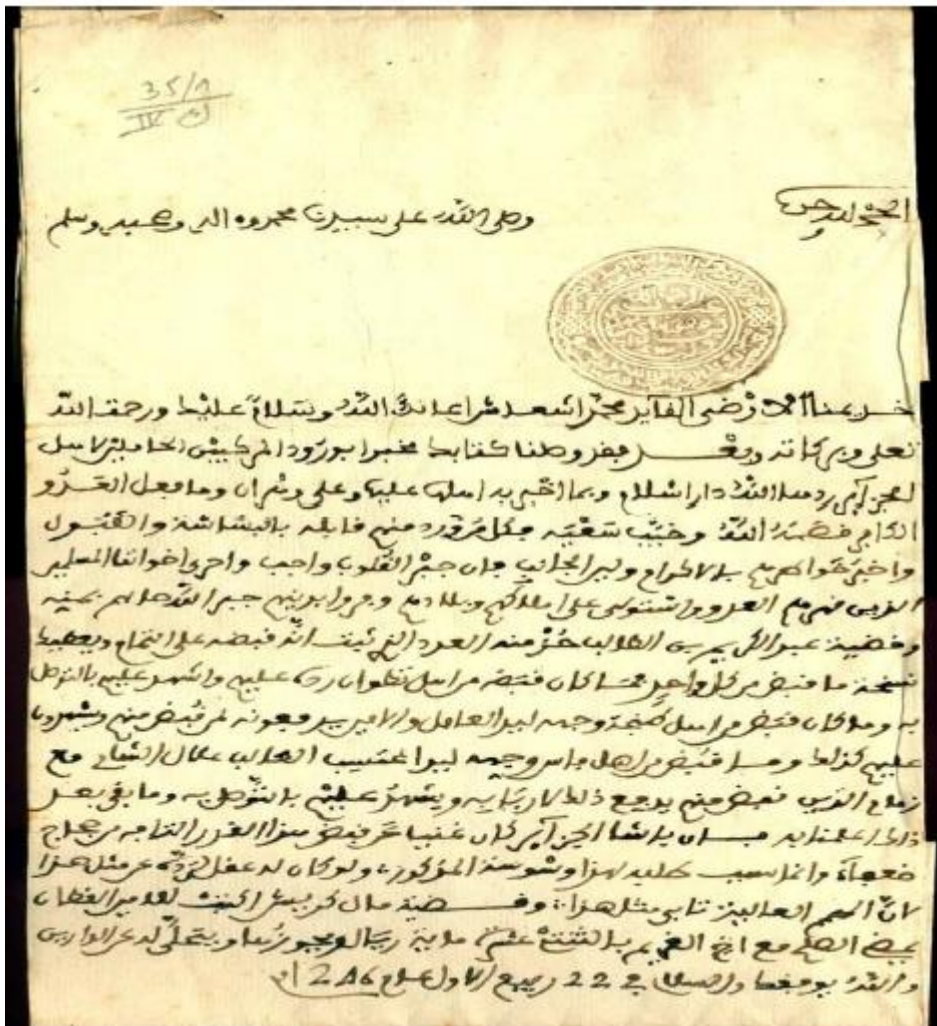 35/1
IV ك
الحمد لله وحده
وصلى الله على سيدنا محمد وآله وصحبه وسلم
خديمنا الأرضى القايد محمد اشعاش اعانك الله وسلام عليك ورحمة الله
تعلى وبركاته وبعد فقد وصلنا كتابك مخبرا بورود المركبين الحاملين لاهل
الجزاير ردها الله دار اسلام وبما اخبر به اهلها عليها وعلى وهران وما فعل العدو
الكافر قصمه الله وخيب سعيه فكل من ورد منهم قابله بالبشاشة والقبول
واجبر خواطرهم بالاكرام ولين الجانب فان جبر القلوب واجب واحرى اخواننا المسلمين
الذين ضرهم العدو واستولى على املاكهم وبلادهم وفروا بدينهم جبر الله حالهم بمنه
وقضية عبد الكريم بن الطالب خذ منه العدد الذي ثبت انه قبضه على التمام ويعطيك
نسخة ما قبض من كل واحد فما كان قبضه من اهل تطوان رده عليهم واشهد عليهم بالتوصل
به وما كان قبض من اهل طنجة وجهه ليد العامل والامين يدفعونه لمن قبض منهم ويشهدون
عليهم كذلك وما قبض من اهل فاس وجهه ليد المحتسب الطالب
الذين قبض منهم يدفع ذلك لاربابه ويشهد عليهم بالتوصل به وما بقي بعد
ذلك اعلمنا به فان باشا الجزاير كان غنيا عن قبض هذا القدر التافه من حجاج
ضعفاء وانما سبب هذا وشوسة المذكور ولو كان له عقل عن مثل هذا
لان الهمم العالية تابى مثل هذا وقضية مال
بمضي الصلح مع اخ الغريم مائة ريال
والله يوفقك والسلام في 22 ربيع الاول عام 1246